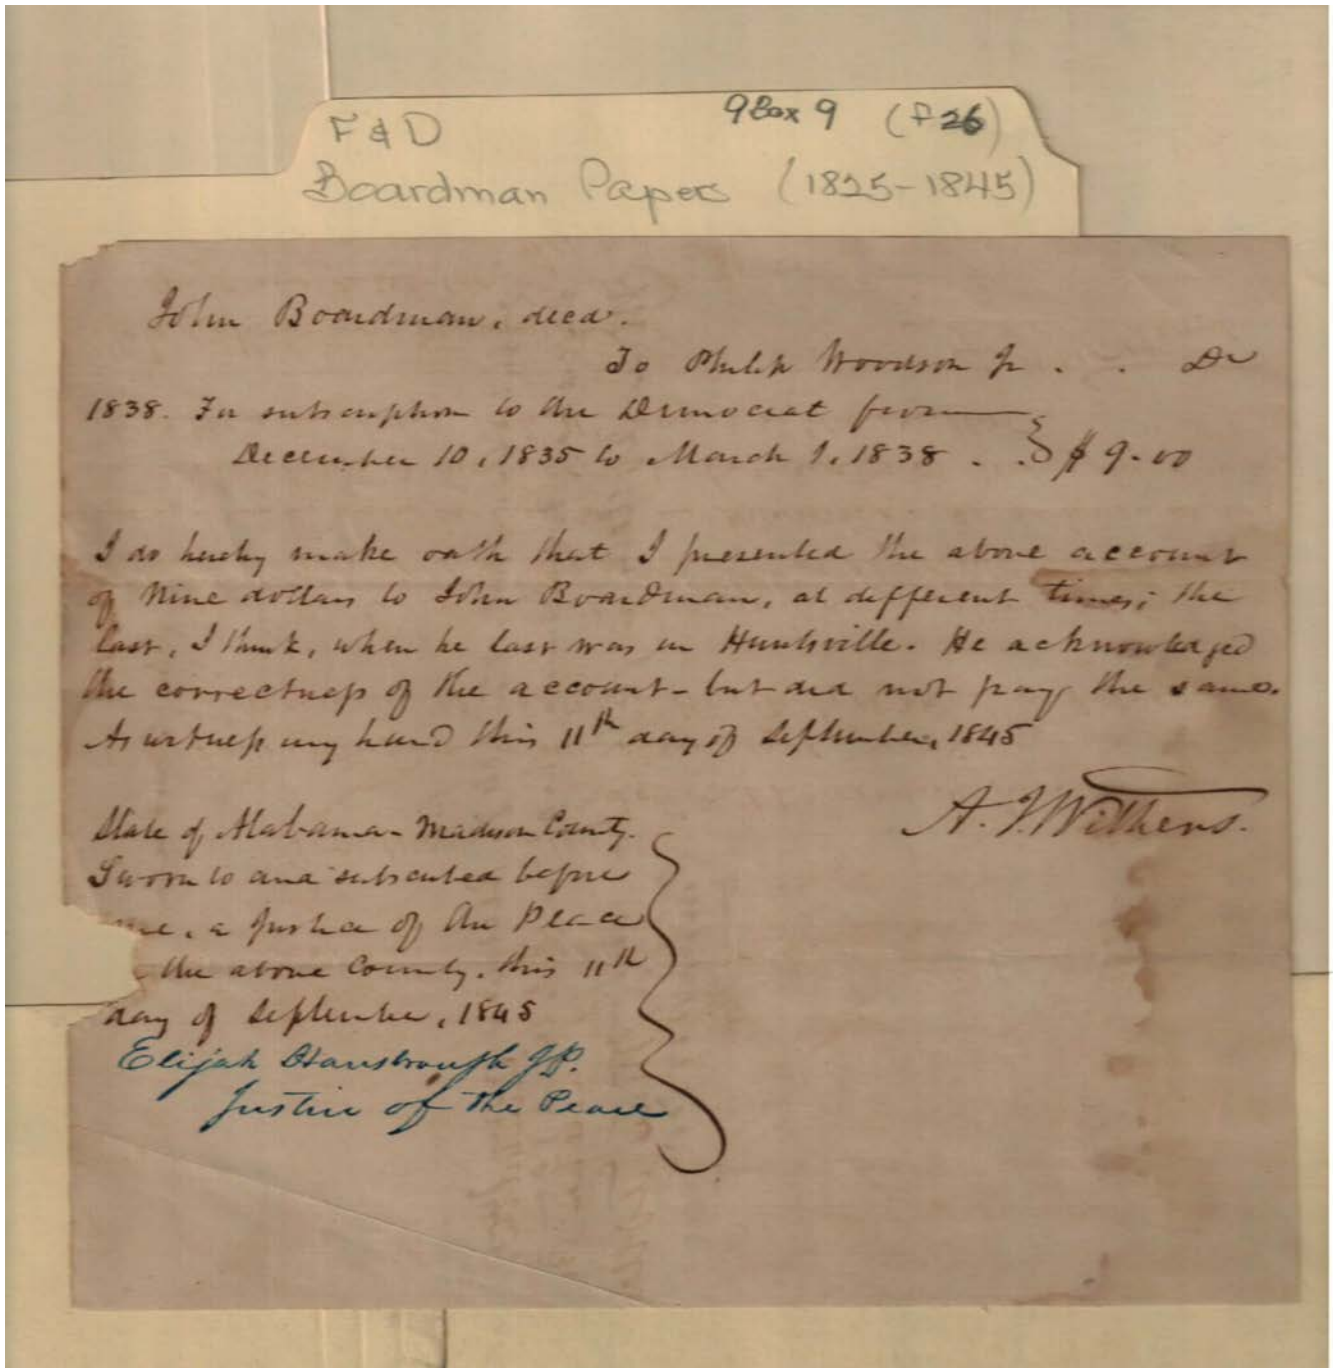 F & D 9Box 9 (f 26)
Boardman Papers (1825-1845)
John Boardman, decd.
To Philip Woodson Jr . . Dr
1838. For subscription to the Democrat from
December 10, 1835 to March 1, 1838 . . } $ 9.00
I do hereby make oath that I presented the above account
of Nine dollars to John Boardman, at different times; the
last, I think, when he last was in Huntsville. He acknowledged
the correctness of the account - but did not pay the same.
As witness my hand this 11th day of September, 1845
A. J. Withers.
State of Alabama - Madison County.
Sworn to and subscribed before
me, a Justice of the Peace
the above County, this 11th
day of September, 1845
Elijah Hansbrough J.P.
Justice of the Peace